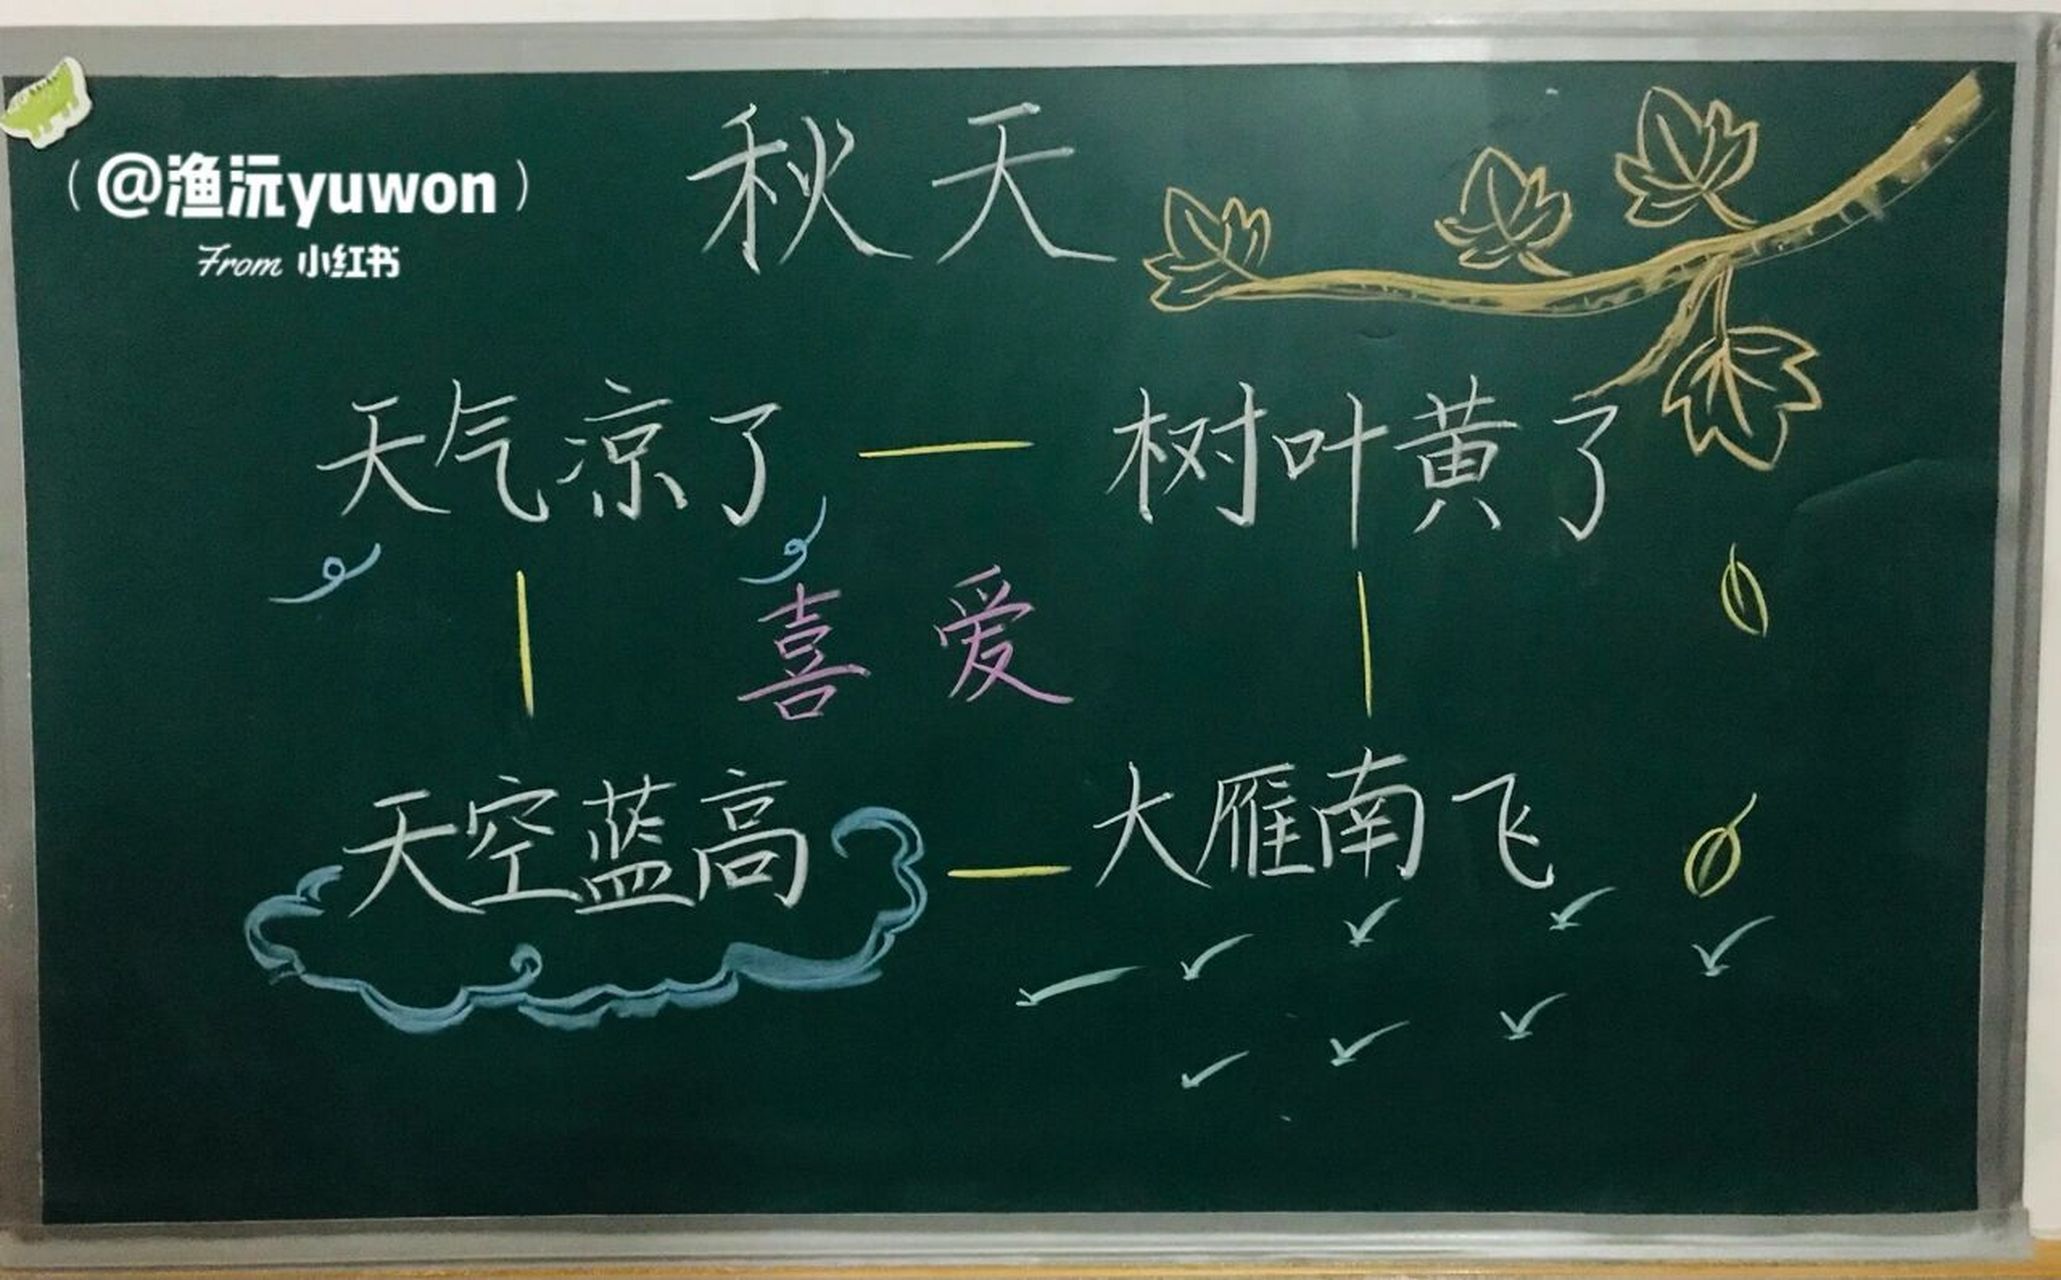 (@渔沅yuwon)
From 小红书
秋天
天气凉了 — 树叶黄了
喜爱
天空蓝高 — 大雁南飞